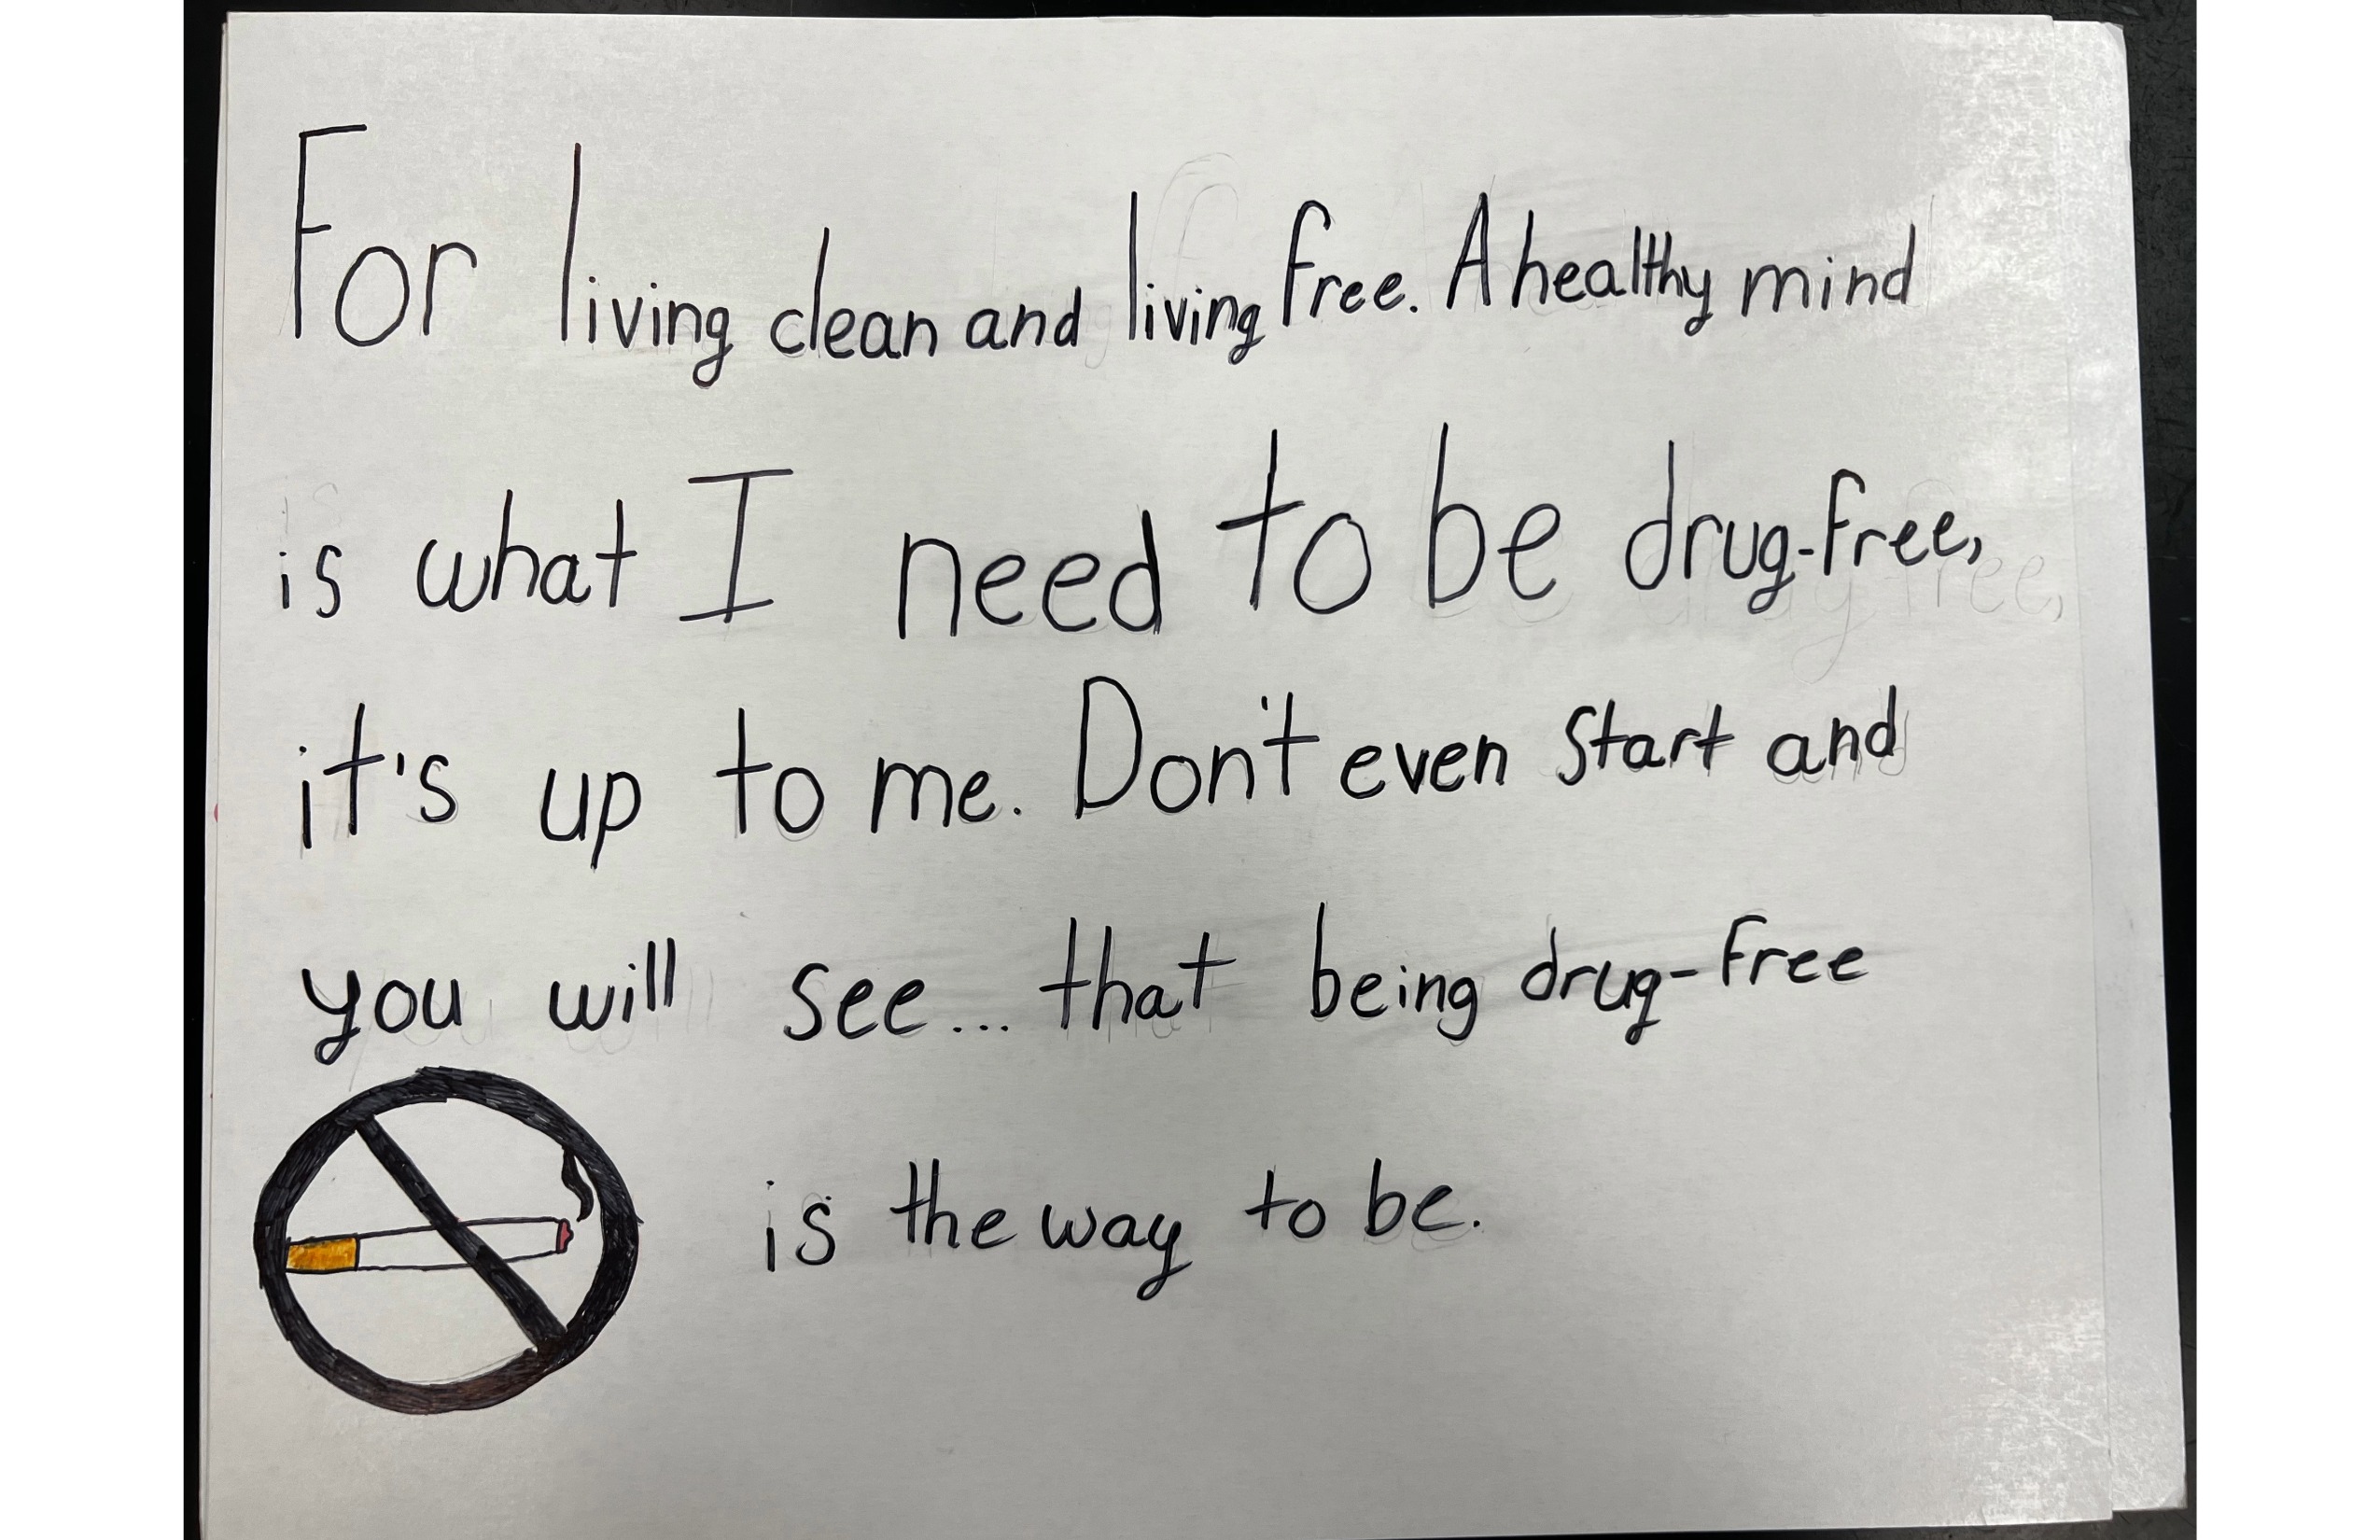 For living clean and living free. A healthy mind
is what I need to be drug-free,
it's up to me. Don't even start and
you will see... that being drug-free
is the way to be.